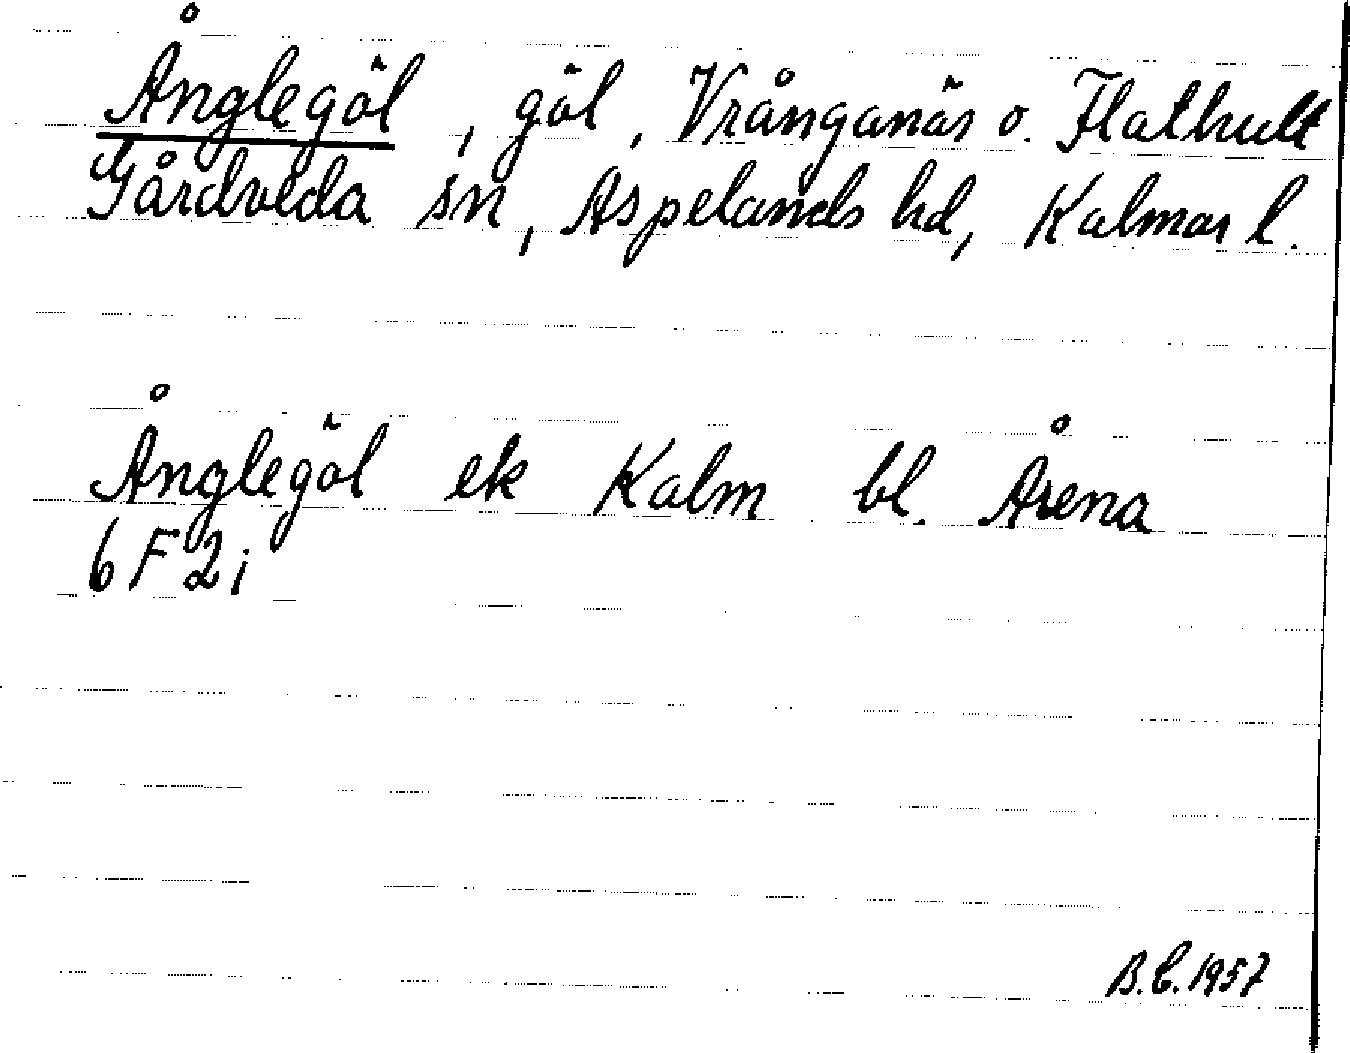 Ånglegöl, göl, Vrånganäs o. Flathult
Gårdveda sn, Aspelands hd, Kalmar l.
Ånglegöl ek Kalm bl. Årena
6 F 2 i
B.C. 1957